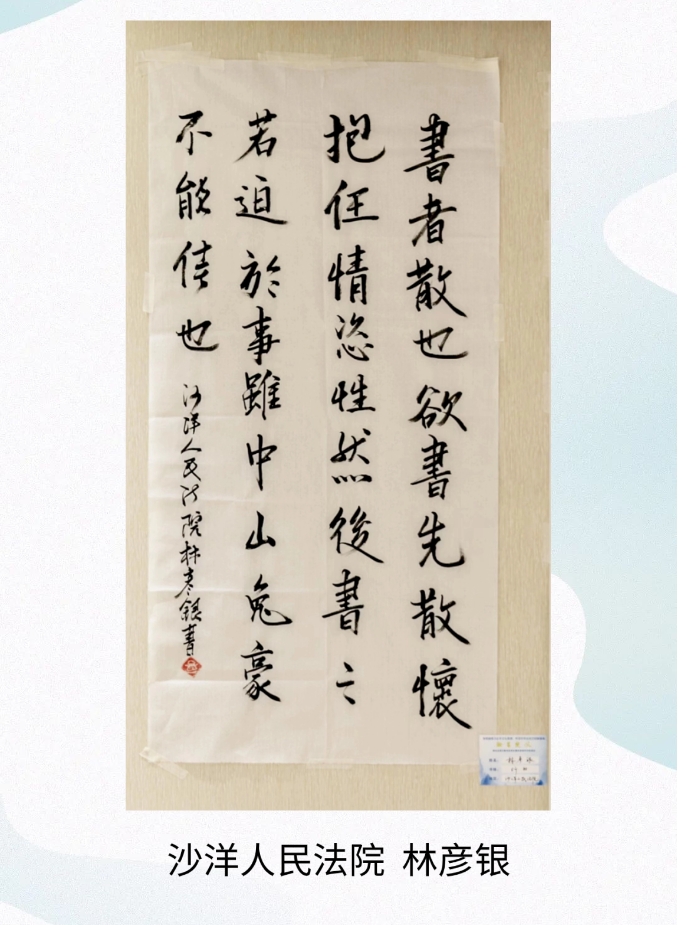 書者散也欲書先散懷
抱任情恣性然後書之
若迫於事雖中山兔豪
不能佳也
沙洋人民法院林彦銀書
沙洋人民法院 林彦银